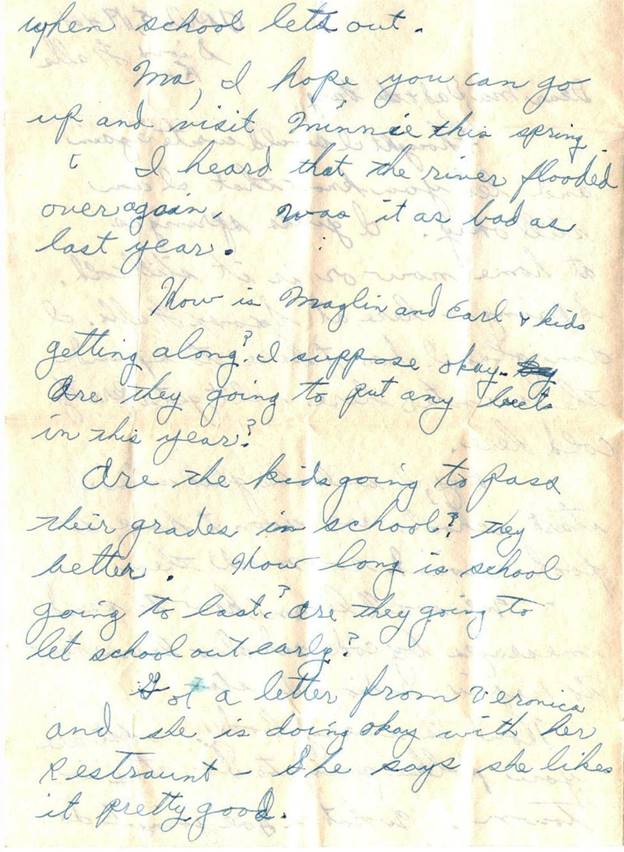 when school lets out.
Ma, I hope you can go
up and visit Minnie this spring.
I heard that the river flooded
over again. Was it as bad as
last year.
How is Maglin and Earl & kids
getting along? I suppose okay.
Are they going to put any beets
in this year?
Are the kids going to pass
their grades in school? They
better. How long is school
going to last? Are they going to
let school out early?
Got a letter from Veronica
and she is doing okay with her
Restraunt - She says she likes
it pretty good.